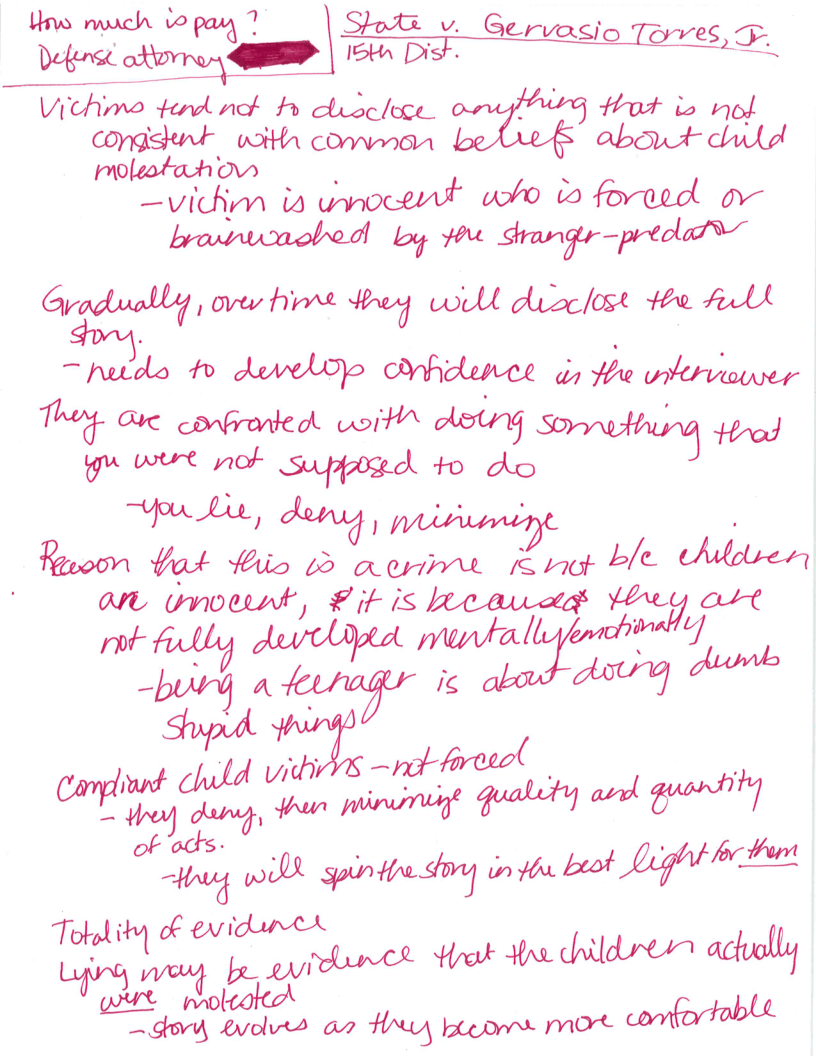 How much is pay?
Defense attorney
State v. Gervasio Torres, Jr.
15th Dist.
Victims tend not to disclose anything that is not
consistent with common beliefs about child
molestation
-victim is innocent who is forced or
brainwashed by the stranger-predator
Gradually, over time they will disclose the full
story.
-needs to develop confidence in the interviewer
They are confronted with doing something that
you were not supposed to do
-you lie, deny, minimize
Reason that this is a crime is not b/c children
are innocent, it is because they are
not fully developed mentally/emotionally
-being a teenager is about doing dumb
stupid things
Compliant child victims - not forced
- they deny, then minimize quality and quantity
of acts.
-they will spin the story in the best light for them
Totality of evidence
Lying may be evidence that the children actually
were molested
-story evolves as they become more comfortable